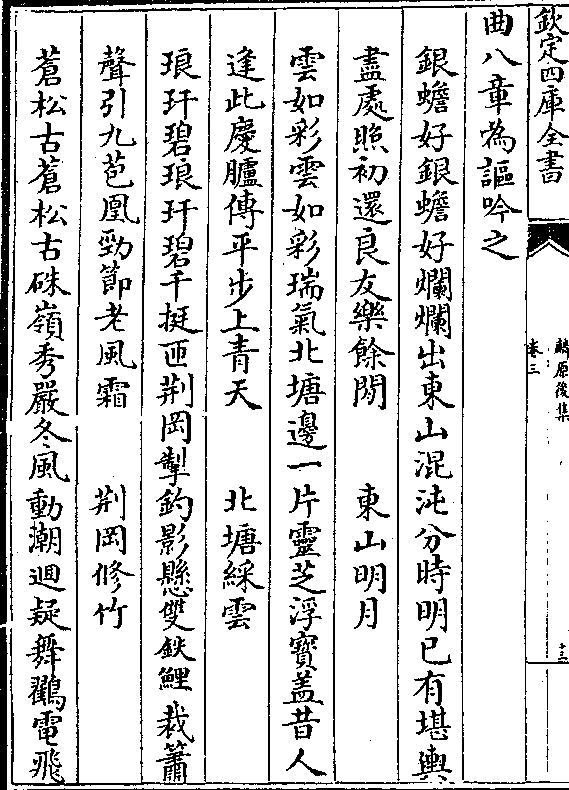 欽定四庫全書
麟原後集
卷三
十三
曲八章為謳吟之
銀蟾好銀蟾好爛爛出東山混沌分時明已有堪輿
盡處照初還良友樂餘閒　東山明月
雲如彩雲如彩瑞氣北塘邊一片靈芝浮寳盖昔人
逢此慶臚傳平步上青天　北塘綵雲
琅玕碧琅玕碧千挺匝荆岡掣釣影懸雙鉄鯉裁簫
聲引九苞凰勁節老風霜　荆岡修竹
蒼松古蒼松古硃嶺秀嚴冬風動潮迴疑舞鸛電飛